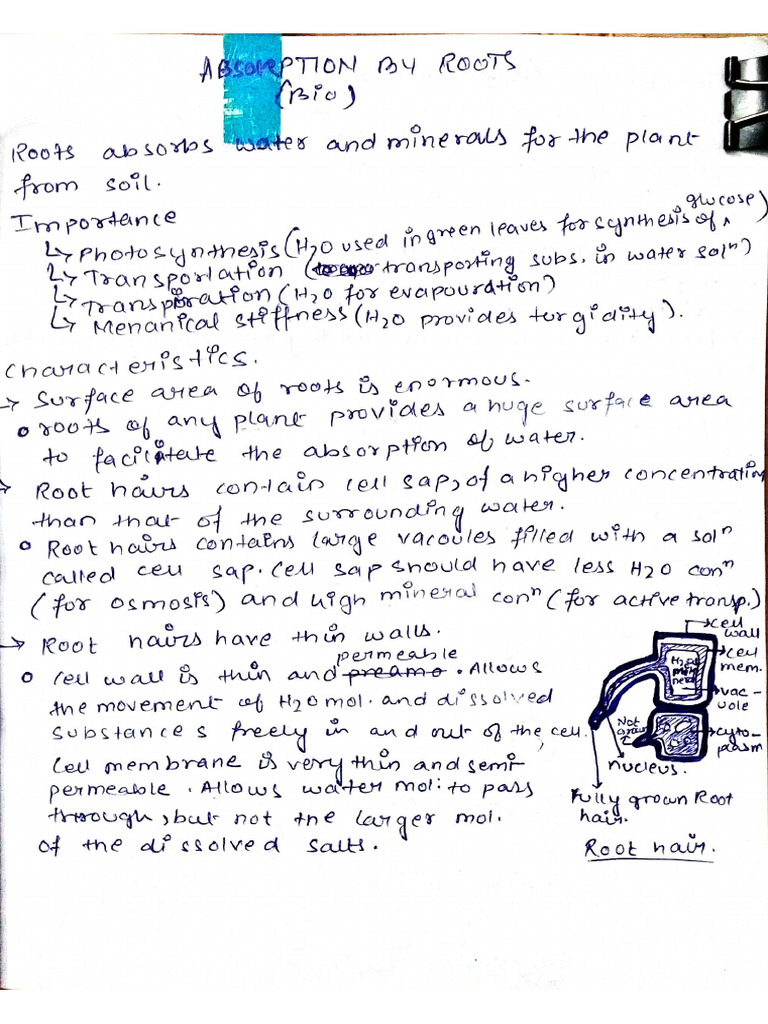 ABSORPTION BY ROOTS
(Bio)
Roots absorbs water and minerals for the plant
from soil.
Importance
↳ Photosynthesis (H2O used in green leaves for synthesis of ^ glucose)
↳ Transportation (transporting subs. in water solⁿ)
↳ Transpiration (H2O for evapouration)
↳ Menanical stiffness (H2O provides turgidity).
Characteristics.
→ Surface area of roots is enormous.
o roots of any plant provides a huge surface area
to facilitate the absorption of water.
→ Root hairs contain cell sap, of a higher concentration
than that of the surrounding water.
o Root hairs contains large vacoules filled with a solⁿ
called cell sap. Cell sap should have less H2O conⁿ
(for osmosis) and high mineral conⁿ (for active transp.)
→ Root hairs have thin walls.
o Cell wall is thin and permeable. Allows
the movement of H2O mol. and dissolved
substances freely in and out of the cell.
Cell membrane is very thin and semi-
permeable. Allows water mol. to pass
through, but not the larger mol.
of the dissolved salts.
→ cell
wall
→ cell
mem.
→ vac-
uole
Not
grown
→ cyto-
plasm
nucleus.
Fully grown Root
hair.
Root hair.